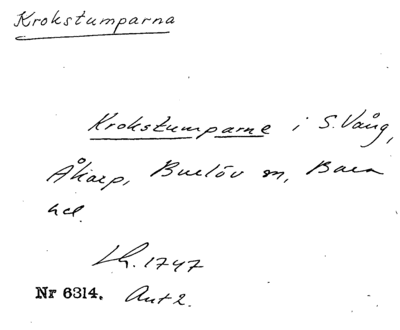 Krokstumparna
Krokstumparne i S. Vång,
Åkarp, Burlöv sn, Bara
hd.
Lh. 1747
Nr 6314. Ant 2.